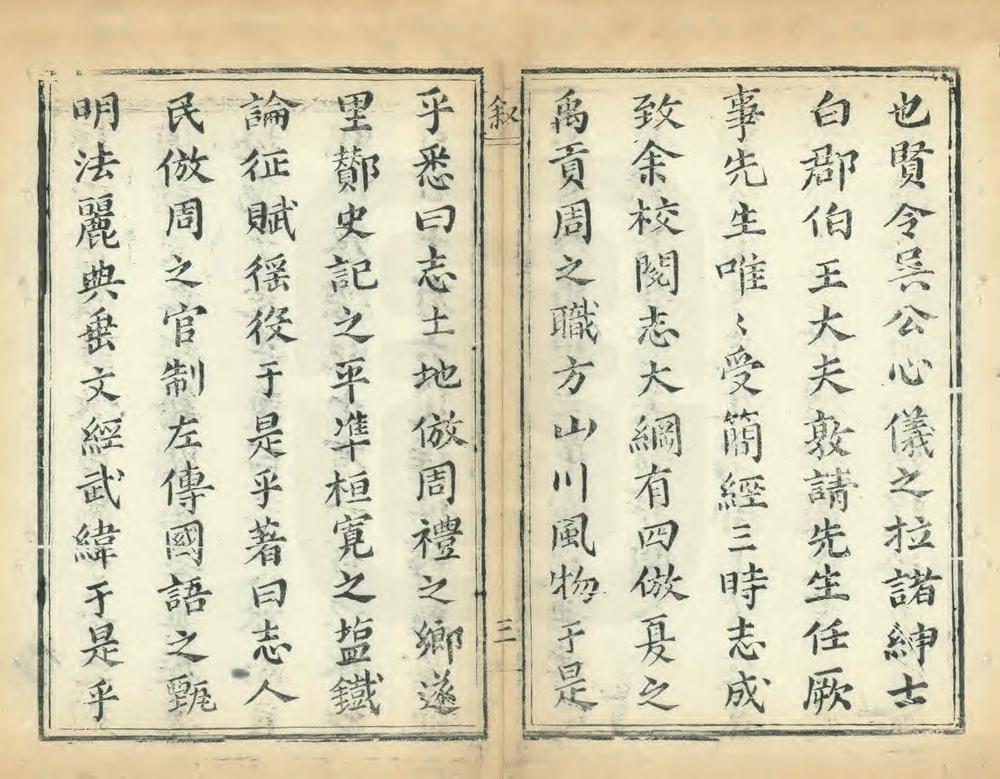 也賢令吳公心儀之拉諸紳士
白郡伯王大夫敦請先生任厥
事先生唯〻受簡經三時志成
致余校閱志大綱有四倣夏之
禹貢周之職方山川風物于是
叙
三
乎悉曰志土地倣周禮之鄉遂
里酇史記之平準桓寬之塩鐵
論征賦徭役于是乎著曰志人
民倣周之官制左傳國語之甄
明法麗典垂文經武緯于是乎